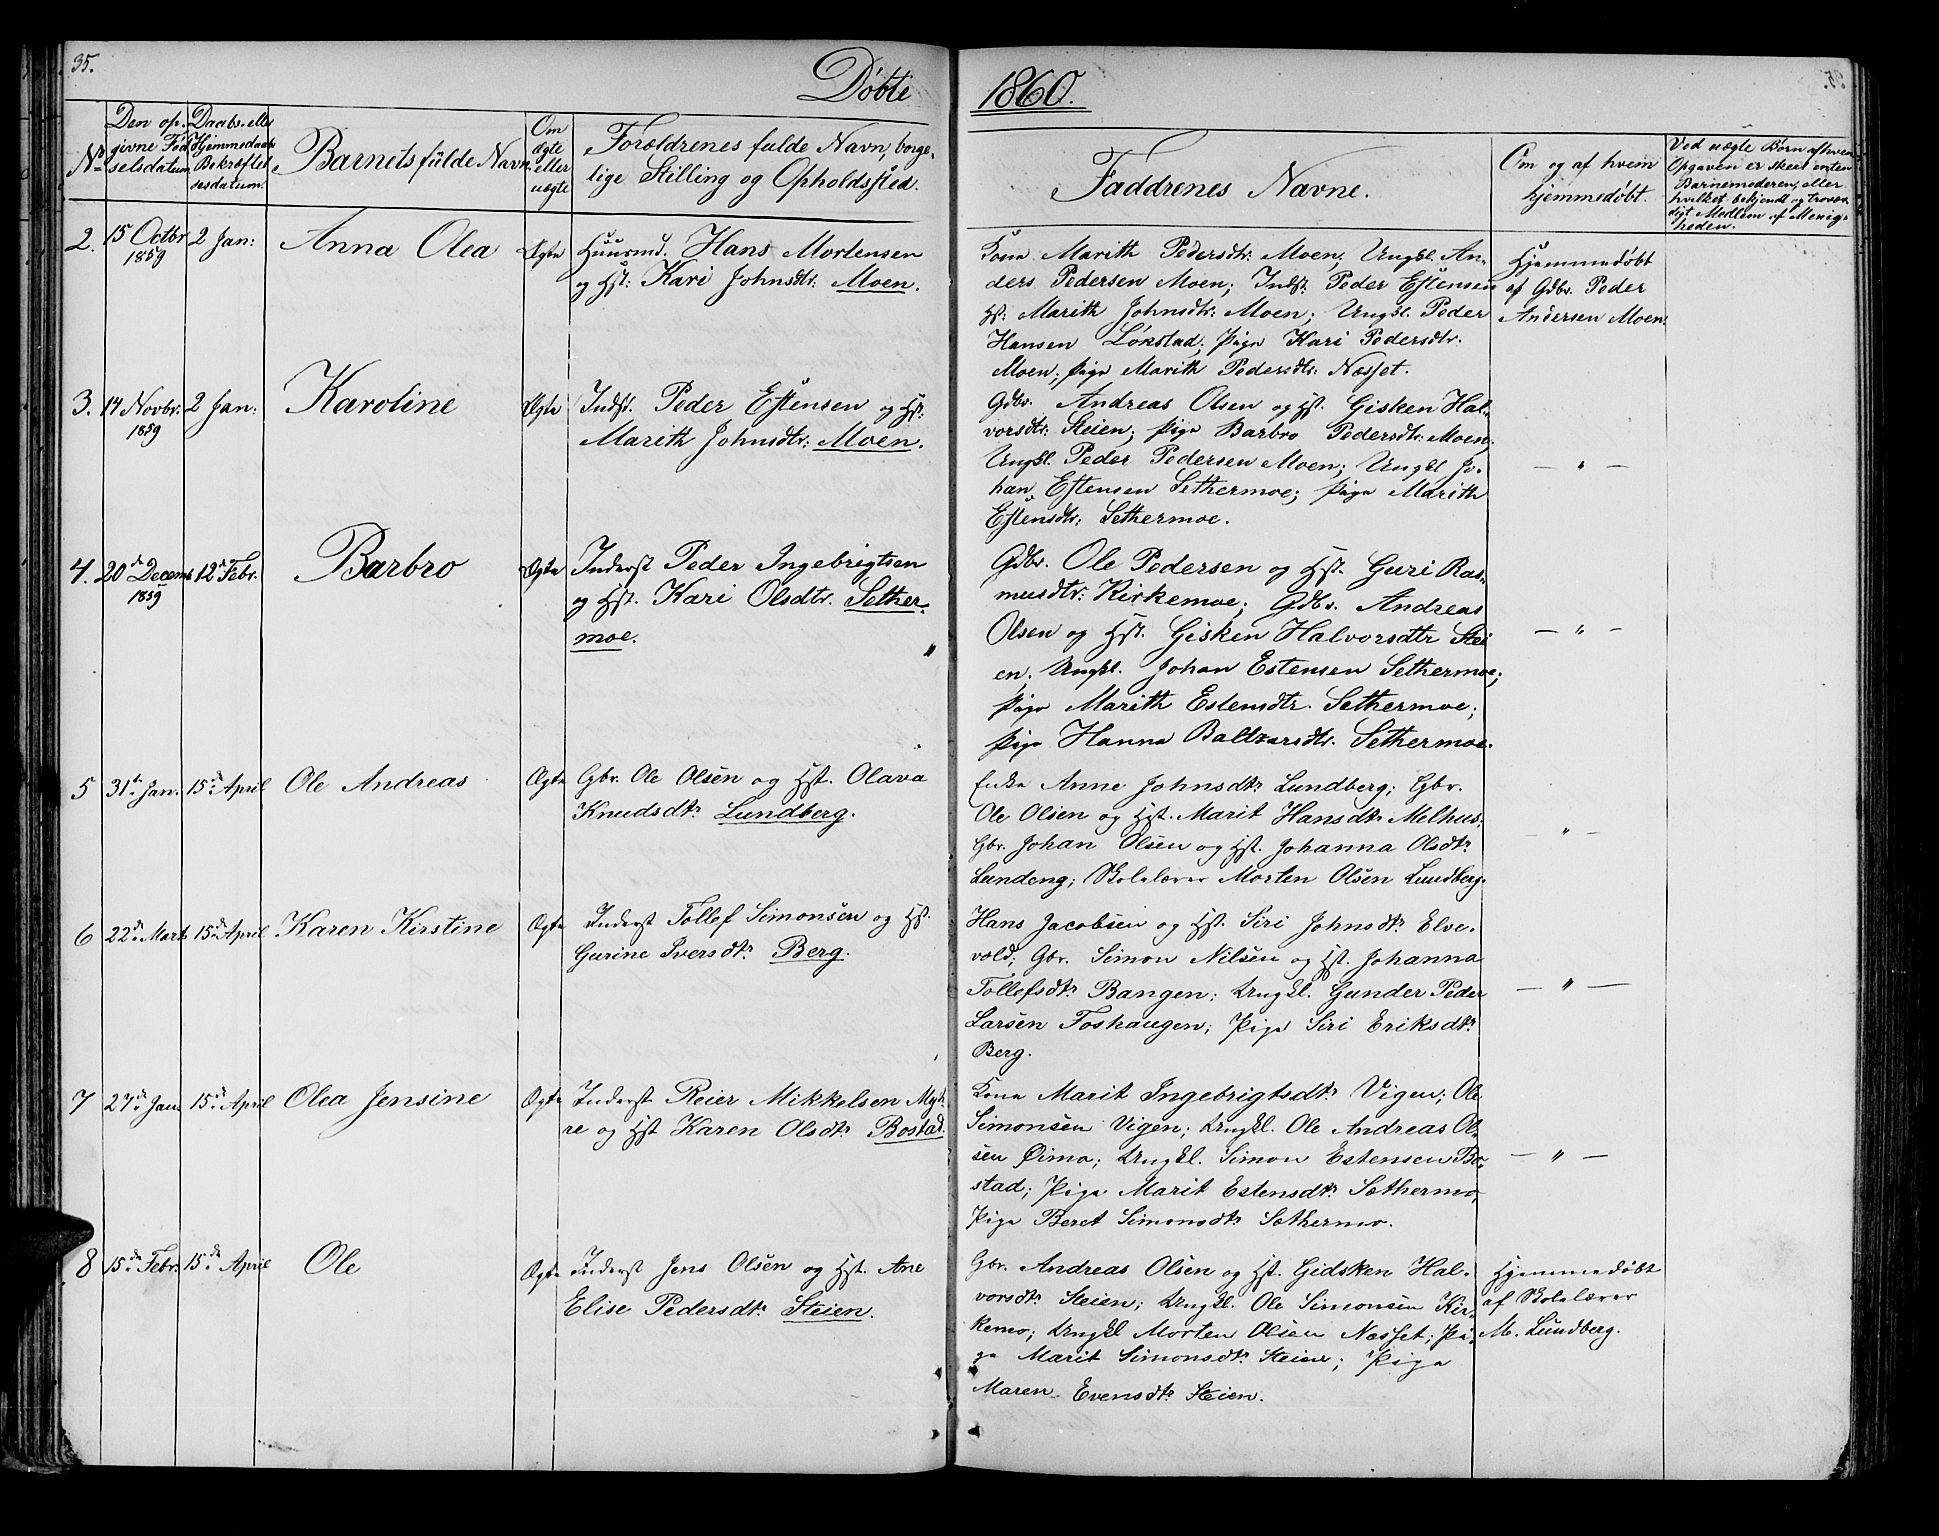 35.
Døbte 1860.
No
Den op-
givne Fød-
selsdatum
Daabs- eller
Hjemmedaabs
Bekræftel-
sesdatum.
Barnets fulde Navn.
Om
Ægte
eller
uægte
Forældrenes fulde Navn, borge-
lige Stilling og Opholdssted.
Faddrenes Navne.
Om og af hvem
hjemmedøbt.
Ved uægte Børn af hvem
Opgaven er skeet enten
Barnemoderen, eller
hvilket bekjendt og trovær-
digt Medlem af Menig-
heden.
2. 15 Octbr 1859 2 Jan: Anna Olea Ægte
Huusmd. Hans Mortensen
og Hst: Kari Johnsdtr: Moen.
Kone Marith Pedersdtr: Moen; Ungkl. An-
ders Pedersen Moen; Indst: Peder Estensen
Hst: Marith Johnsdtr: Moen; Ungkl. Peder
Hansen Løkstad; Pige Kari Pedersdtr:
Moen; Pige Marith Pedersdtr: Næsset.
Hjemmedøbt
af Gdbr. Peder
Andersen Moen:
3. 14 Novbr. 1859 2 Jan: Karoline Ægte
Indst. Peder Estensen og Hst:
Marith Johnsdtr: Moen.
Gdbr. Andreas Olsen og Hst. Gisken Hal-
vorsdtr: Steien; Pige Barbro Pedersdtr: Moen;
Ungkl. Peder Pedersen Moen; Ungkl Jo-
han Estensen Sethermoe; Pige Marith
Estensdtr: Sethermoe.
— " —
4. 20de Decemb 1859 12te Febr. Barbro Ægte
Inderst Peder Ingebrigtsen
og Hst. Kari Olsdtr. Sether-
moe.
Gdbr. Ole Pedersen og Hst. Guri Ras-
musdtr: Kirkemoe; Gdbr. Andreas
Olsen og Hst. Gisken Halvorsdtr Stei
en; Ungkl. Johan Estensen Sethermoe;
Pige Marith Estensdtr. Sethermoe;
Pige Hanna Baltzarsdtr. Sethermoe.
— " —
5 31te Jan. 15de April Ole Andreas Ægte
Gbr. Ole Olsen og Hst. Olava
Knudsdtr Lundberg.
Enke Anne Johnsdtr Lundberg; Gbr.
Ole Olsen og Hst. Marit Hansdtr Melhus;
Gbr. Johan Olsen og Hst. Johanna Olsdtr
Lundeng; Skolelærer Morten Olsen Lundberg.
— " —
6 22de Marts 15de April Karen Kirstine Ægte
Inderst Tollef Simonsen og Hst.
Gurine Iversdtr Berg.
Hans Jacobsen og Hst. Siri Johnsdtr Elve-
vold; Gbr. Simon Nilsen og Hst. Johanna
Tollefsdtr Bangen; Ungkl. Gunder Peder
Larsen Foshaugen; Pige Siri Eriksdtr
Berg.
— " —
7 27de Jan. 15de April Olea Jensine Ægte
Inderst Reier Mikkelsen Myh-
re og Hst Karen Olsdtr Bostad.
Kone Marit Ingebrigtsdtr Vigen; Ole
Simonsen Vigen; Ungkl. Ole Andreas Ol-
sen Øimo; Ungkl. Simon Estensen Bo-
stad; Pige Marit Estensdtr Sæthermo;
Pige Beret Simonsdtr Sæthermo.
— " —
8 15de Febr. 15de April Ole Ægte
Inderst Jens Olsen og Hst. Ane
Elise Pedersdtr Steien.
Gbr. Andreas Olsen og Hst. Gidsken Hal-
vorsdtr Steien; Ungkl. Ole Simonsen Kir-
kemo; Ungkl Morten Olsen Næsset; Pi-
ge Marit Simonsdtr Steien; Pige
Maren Evensdtr Steien.
Hjemmedøbt
af Skolelærer
M. Lundberg.